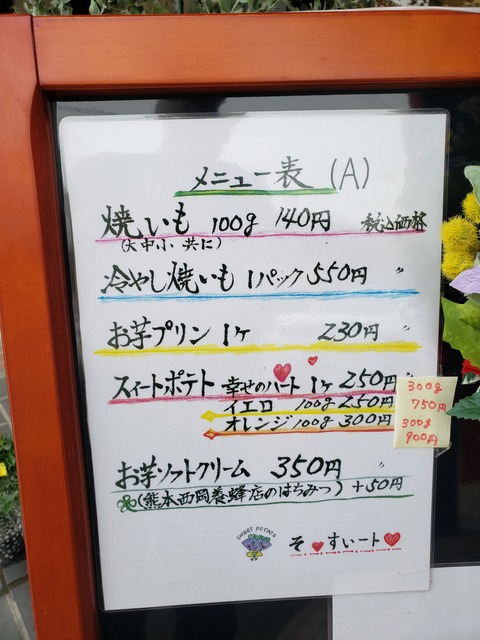 メニュー表 (A)
焼いも 100g 140円 税込価格
(大中小 共に)
冷やし焼いも 1パック 550円 〃
お芋プリン 1ヶ 230円 〃
スイートポテト 幸せのハート 1ヶ 250円
イエロ 100g 250円
オレンジ 100g 300円
300g
750円
300g
900円
お芋ソフトクリーム 350円 〃
(熊本西岡養蜂店のはちみつ) +50円
SWEET POTATO
そ♥すいート♥